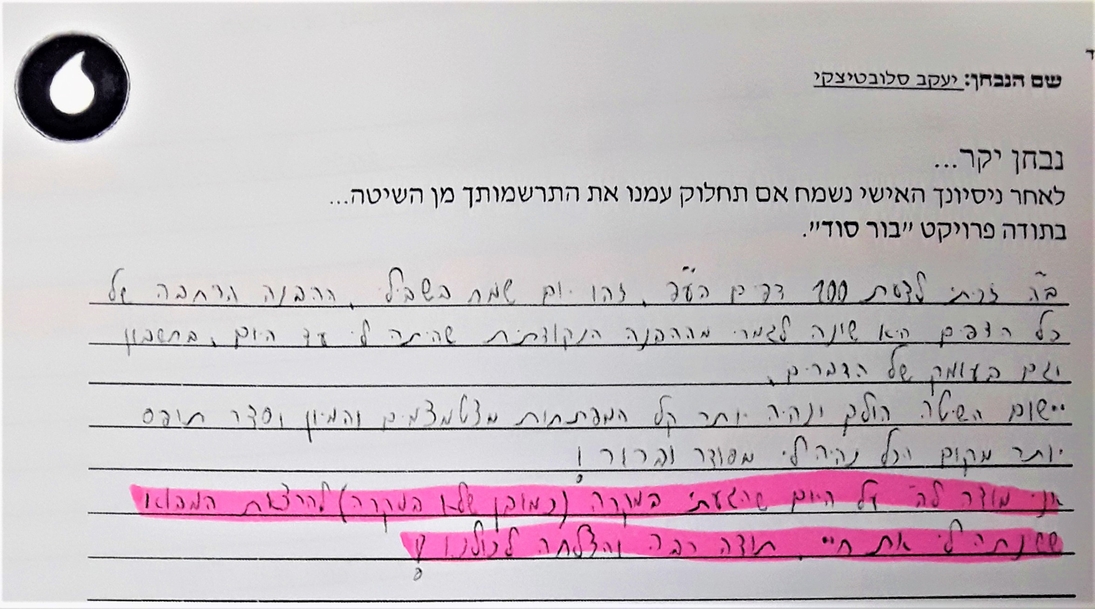 שם הנבחן: יעקב סלובטיצקי
נבחן יקר...
לאחר ניסיונך האישי נשמח אם תחלוק עמנו את התרשמותך מן השיטה...
בתודה פרויקט "בור סוד".
ב"ה זכיתי לדעת 100 דפים בע"פ, זהו יום שמח בשבילי, ההבנה הרחבה של
כל הדפים היא שינה לגמרי מההבנה הנקודתית שהיתה לי עד היום, בחשבון
וגם בעומק של הדברים,
יישום השיטה הולך ונהיה יותר קל המפתחות מצטמצמים והמיון וסדר תופס
יותר מקום הכל נהיה לי מסודר וברור!
אני מודה לה' על היום שהגעתי במקרה (כמובן שלא במקרה) להרצאת המבוא
ששנתה לי את חיי, תודה רבה והצלחה לכולנו!